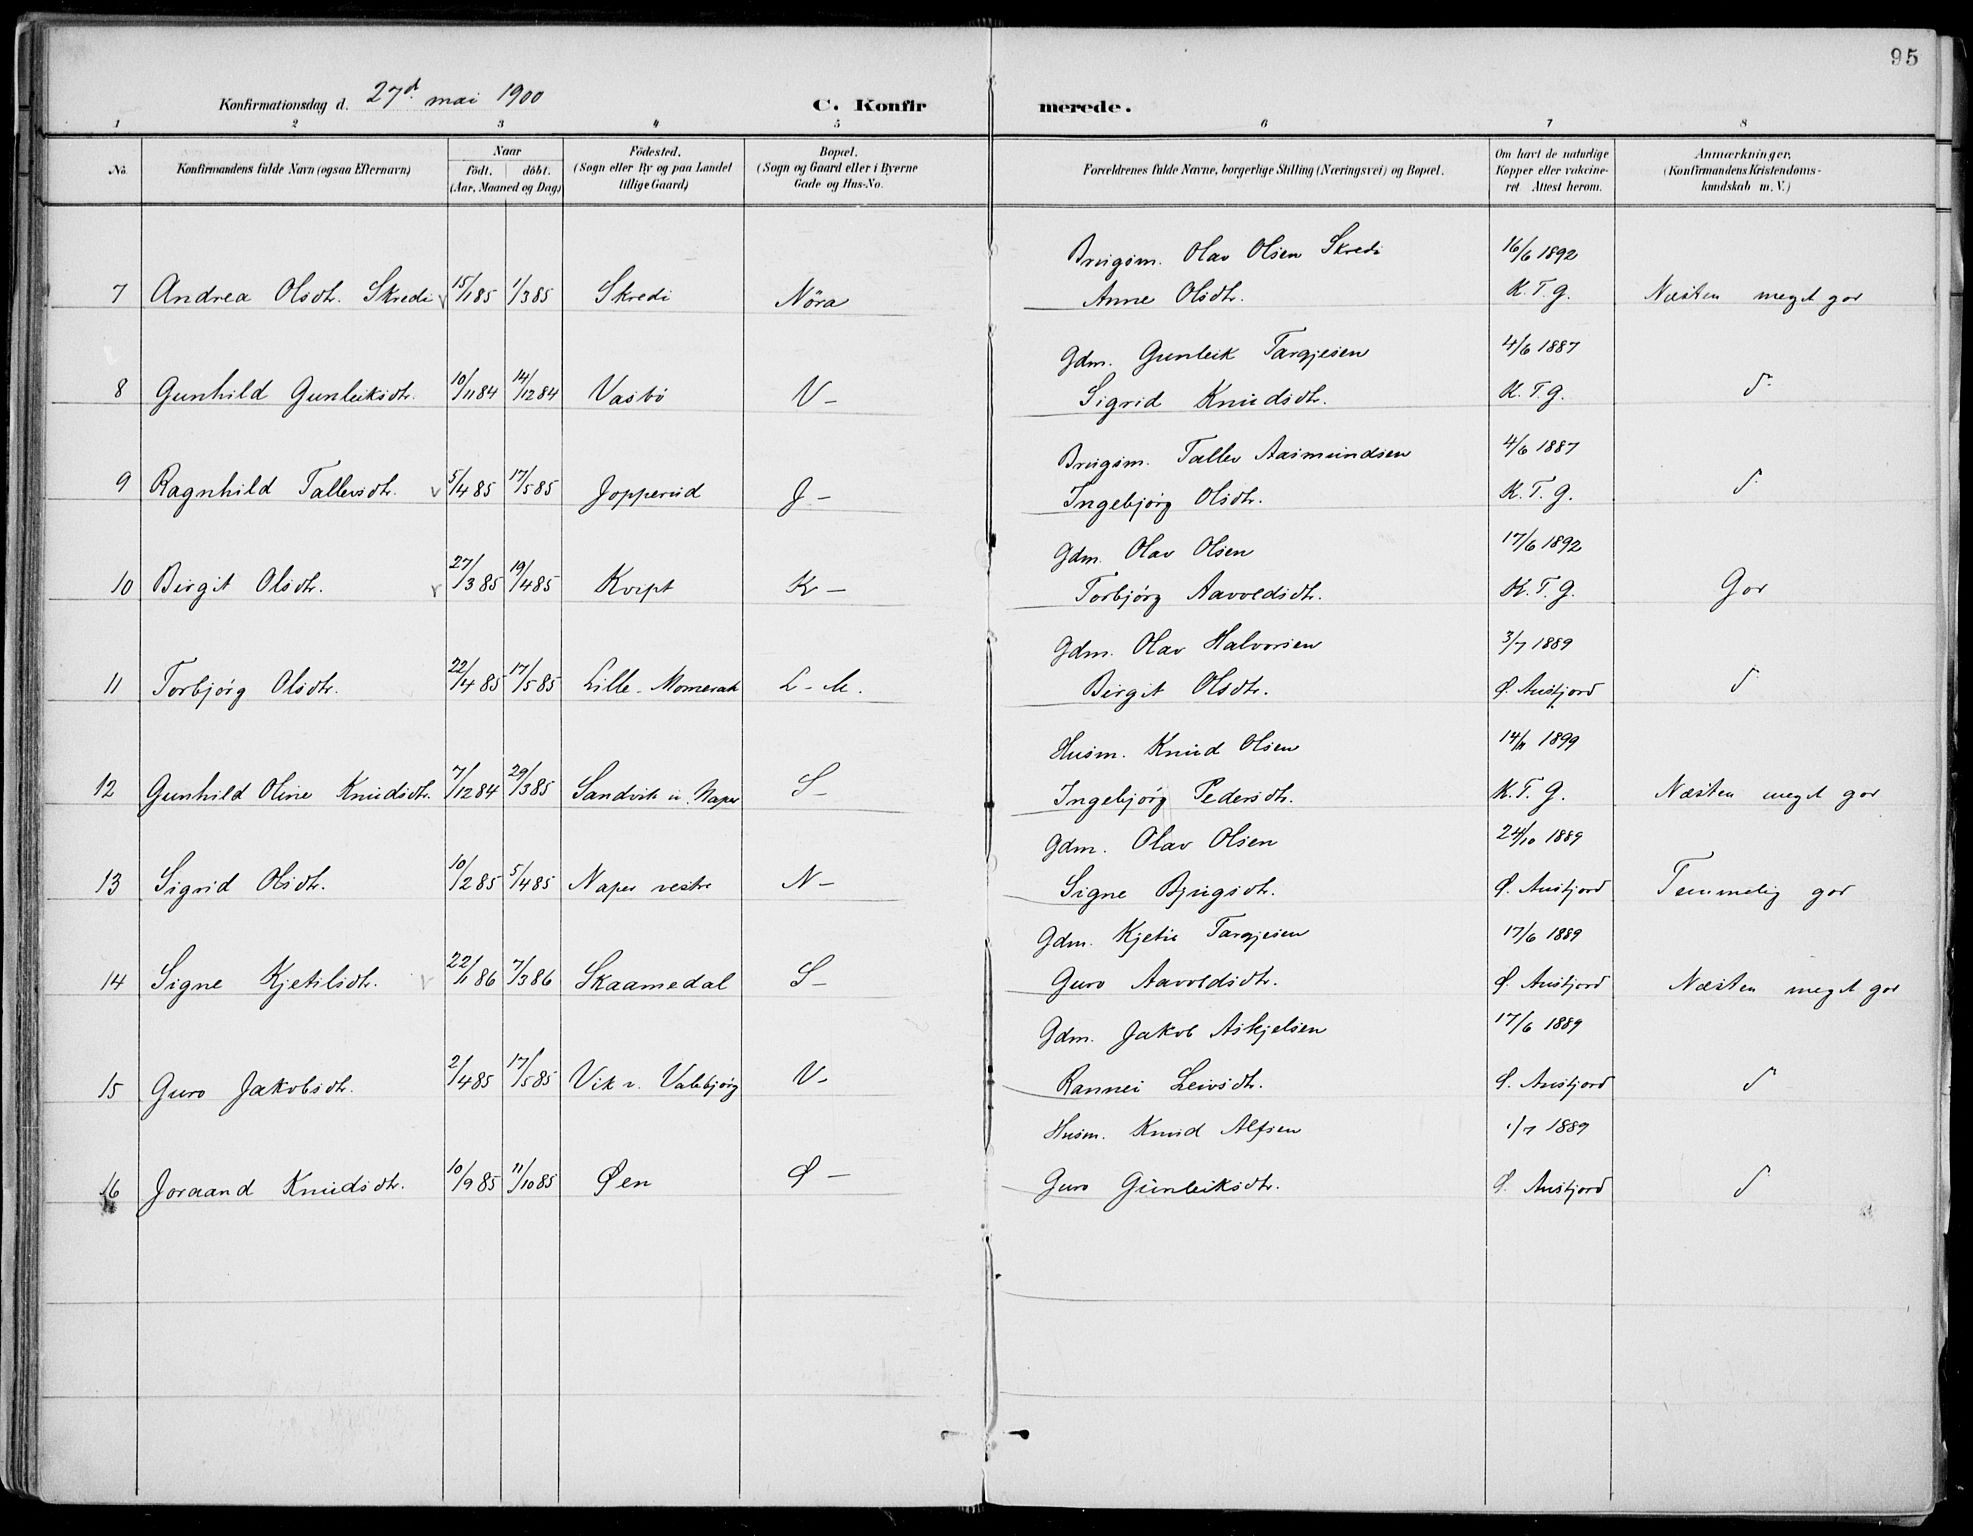 95
Konfirmationsdag d. 27d mai 1900 C. Konfirmerede.
1 2 3 4 5 6 7 8
No. Konfirmandens fulde Navn (ogsaa Efternavn) Naar født. døbt. (Aar, Maaned og Dag) Fødested. (Sogn eller By og paa Landet tillige Gaard) Bopæl. (Sogn og Gaard eller i Byerne Gade og Hus-No. Forældrenes fulde Navne, borgerlige Stilling (Næringsvei) og Bopæl. Om havt de naturlige Kopper eller vakcineret. Attest herom. Anmærkninger. (Konfirmandens Kristendomskundskab m. V.)
Brugsm. Olav Olsen Skredi 16/6 1892
7 Andrea Olsdtr. Skredi 15/1 85 1/3 85 Skredi Nöra Anne Olsdtr. K. T. G. Næsten meget god
Gdm. Gunleik Targjesen 4/6 1887
8 Gunhild Gunleiksdtr. 10/11 84 14/12 84 Vasbö V- Sigrid Knudsdtr. K. T. G. d
Brugsm. Tallev Aasmundsen 4/6 1887
9 Ragnhild Tallevsdtr. 5/4 85 17/5 85 Jopperud J- Ingebjørg Olsdtr. K. T. G. d
Gdm. Olav Olsen 17/6 1892
10 Birgit Olsdtr. 27/3 85 19/4 85 K- Torbjørg Aavoldsdtr. K. T. G. God
Gdm. Olav Halvorsen 3/7 1889
11 Torbjørg Olsdtr. 22/4 85 17/5 85 Lille-Momerak L-M. Birgit Olsdtr. Ø. Austjord d
Husm. Knud Olsen 14/11 1899
12 Gunhild Oline Knudsdtr. 7/12 84 29/3 85 Sandvik u. Naper S- Ingebjørg Pedersdtr. K. T. G. Næsten meget god
Gdm. Olav Olsen 24/10 1889
13 Sigrid Olsdtr. 10/2 85 5/4 85 Naper vestre N- Signe Bjugsdtr. Ø. Austjord Temmelig god
Gdm. Kjetil Targjesen 17/6 1889
14 Signe Kjetilsdtr. 22/1 86 7/3 86 Skaamedal S- Guro Aavoldsdtr. Ø. Austjord Næsten meget god
Gdm. Jakob Askjelsen 17/6 1889
15 Guro Jakobsdtr. 2/4 85 17/5 85 Vik u. Valebjørg V- Rannei Leivsdtr. Ø. Austjord d
Husm. Knud Alfsen 1/7 1889
16 Joraand Knudsdtr. 10/9 85 11/10 85 Øen Ø- Guro Gunleiksdtr. Ø. Austjord d